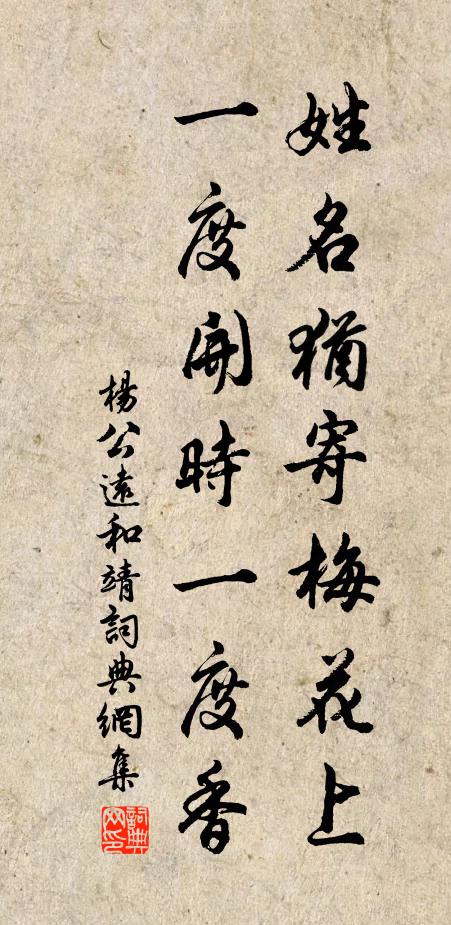 姓名猶寄梅花上
一度開時一度香
楊公遠和靖詞典網集
詞典網印